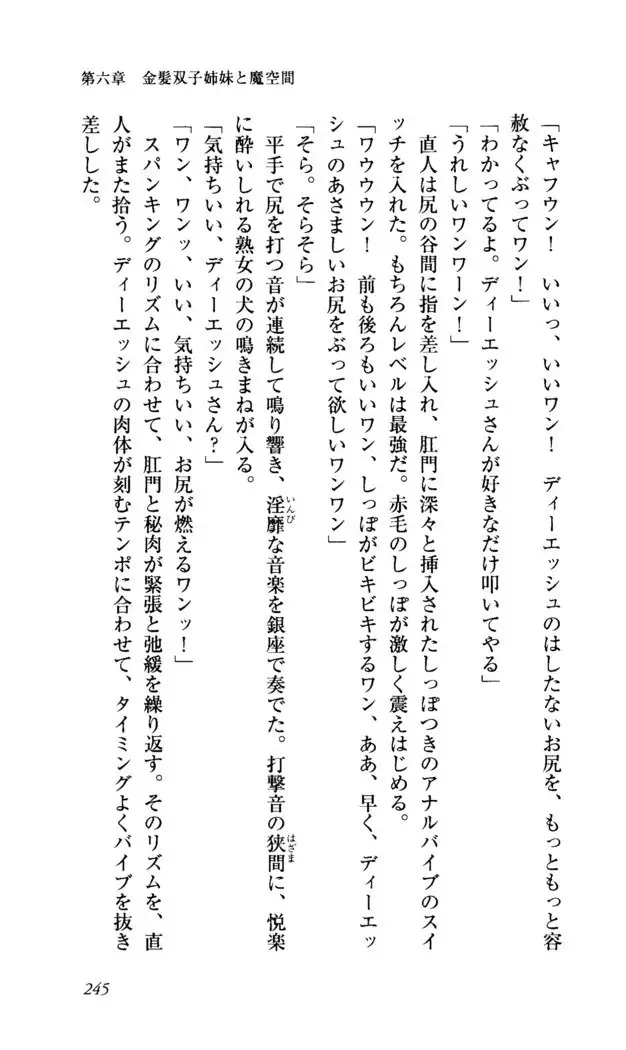 第六章　金髪双子姉妹と魔空間
「キャフウン！　いいっ、いいワン！　ディーエッシュのはしたないお尻を、もっともっと容
赦なくぶってワン！」
「わかってるよ。ディーエッシュさんが好きなだけ叩いてやる」
「うれしいワンワーン！」
　直人は尻の谷間に指を差し入れ、肛門に深々と挿入されたしっぽつきのアナルバイブのスイ
ッチを入れた。もちろんレベルは最強だ。赤毛のしっぽが激しく震えはじめる。
「ワウウウン！　前も後ろもいいワン、しっぽがビキビキするワン、ああ、早く、ディーエッ
シュのあさましいお尻をぶって欲しいワンワン」
「そら。そらそら」
　平手で尻を打つ音が連続して鳴り響き、淫靡な音楽を銀座で奏でた。打撃音の狭間に、悦楽
いんび
はざま
に酔いしれる熟女の犬の鳴きまねが入る。
「気持ちいい、ディーエッシュさん？」
「ワン、ワンッ、いい、気持ちいい、お尻が燃えるワンッ！」
　スパンキングのリズムに合わせて、肛門と秘肉が緊張と弛緩を繰り返す。そのリズムを、直
人がまた拾う。ディーエッシュの肉体が刻むテンポに合わせて、タイミングよくバイブを抜き
差しした。
245